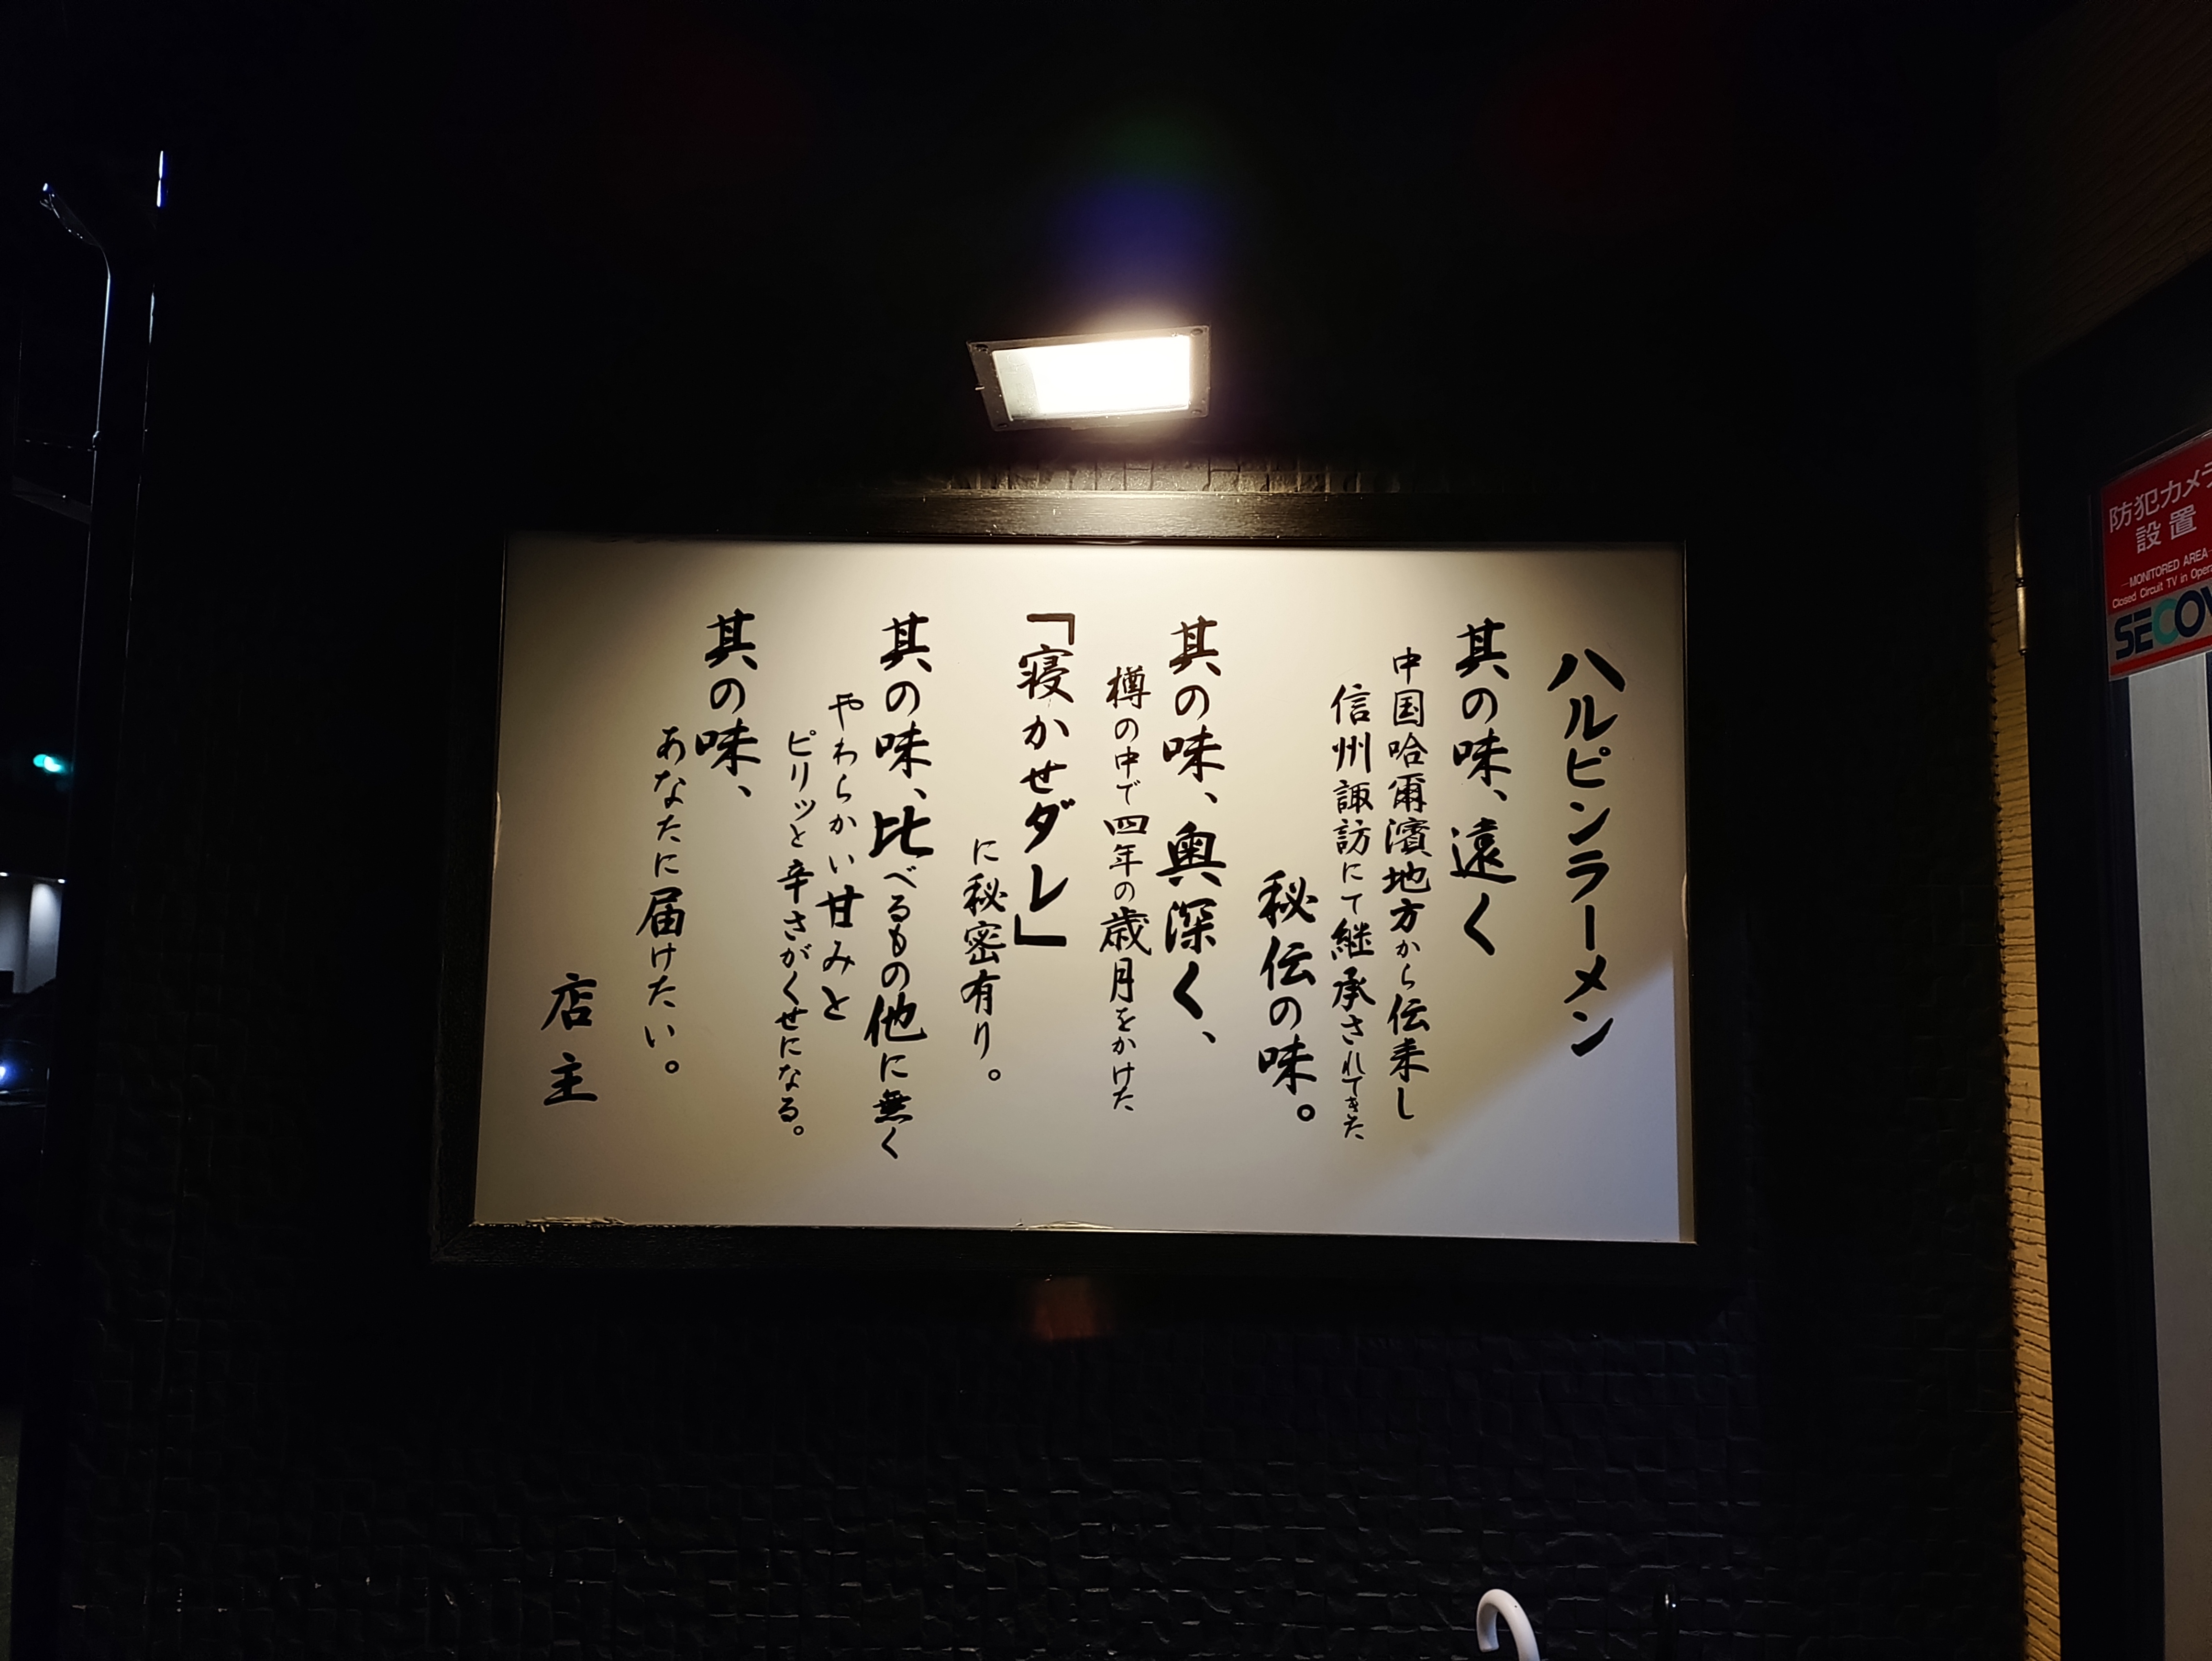 ハルピンラーメン
其の味、遠く
中国哈爾濱地方から伝来し
信州諏訪にて継承されてきた
秘伝の味。
其の味、奥深く、
樽の中で四年の歳月をかけた
「寝かせダレ」
に秘密有り。
其の味、比べるもの他に無く
やわらかい甘みと
ピリッと辛さがくせになる。
其の味、
あなたに届けたい。
店主
防犯カメラ
設置
MONITORED AREA
Closed Circuit TV in